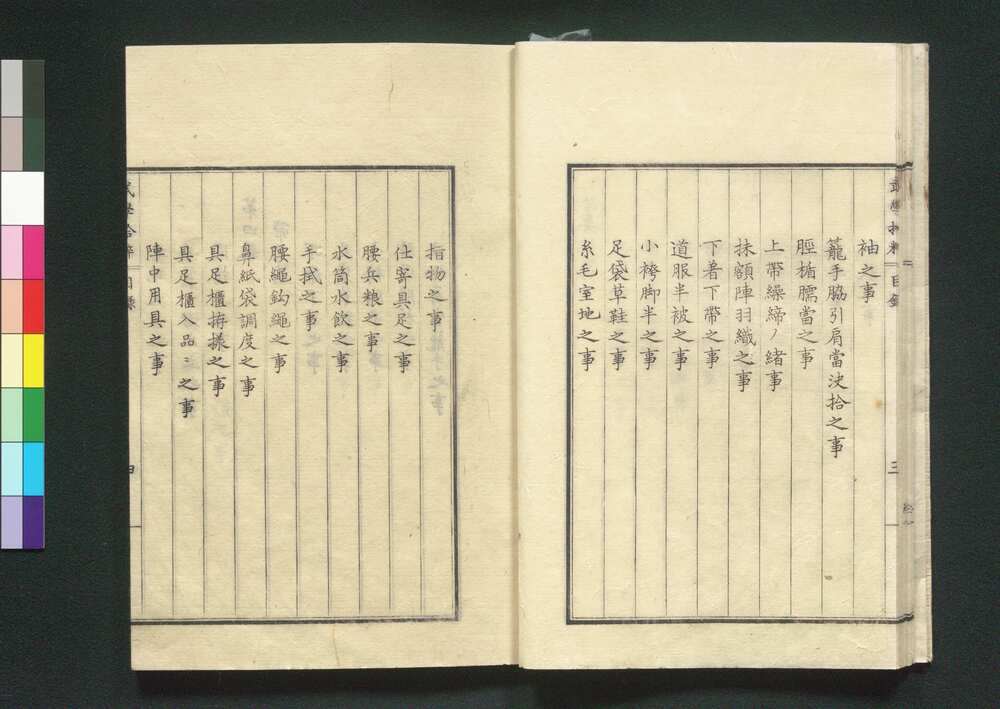 武學拾粹 目錄 三
袖之事
籠手脇引肩當决拾之事
脛楯臑當之事
上帶繰締ノ緒事
抹額陣羽織之事
下着下帶之事
道服半被之事
小袴脚半之事
足袋草鞋之事
糸毛室地之事
指物之事
仕寄具足之事
腰兵粮之事
水筒水飲之事
手拭之事
腰繩鈎繩之事
鼻紙袋調度之事
具足櫃拵樣之事
具足櫃入品々之事
陣中用具之事
武學拾粹 目錄 四